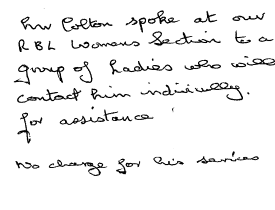 Mr Colton spoke at our
RBL Womens Section to a
group of Ladies who will
contact him individually.
for assistance
No charge for his services